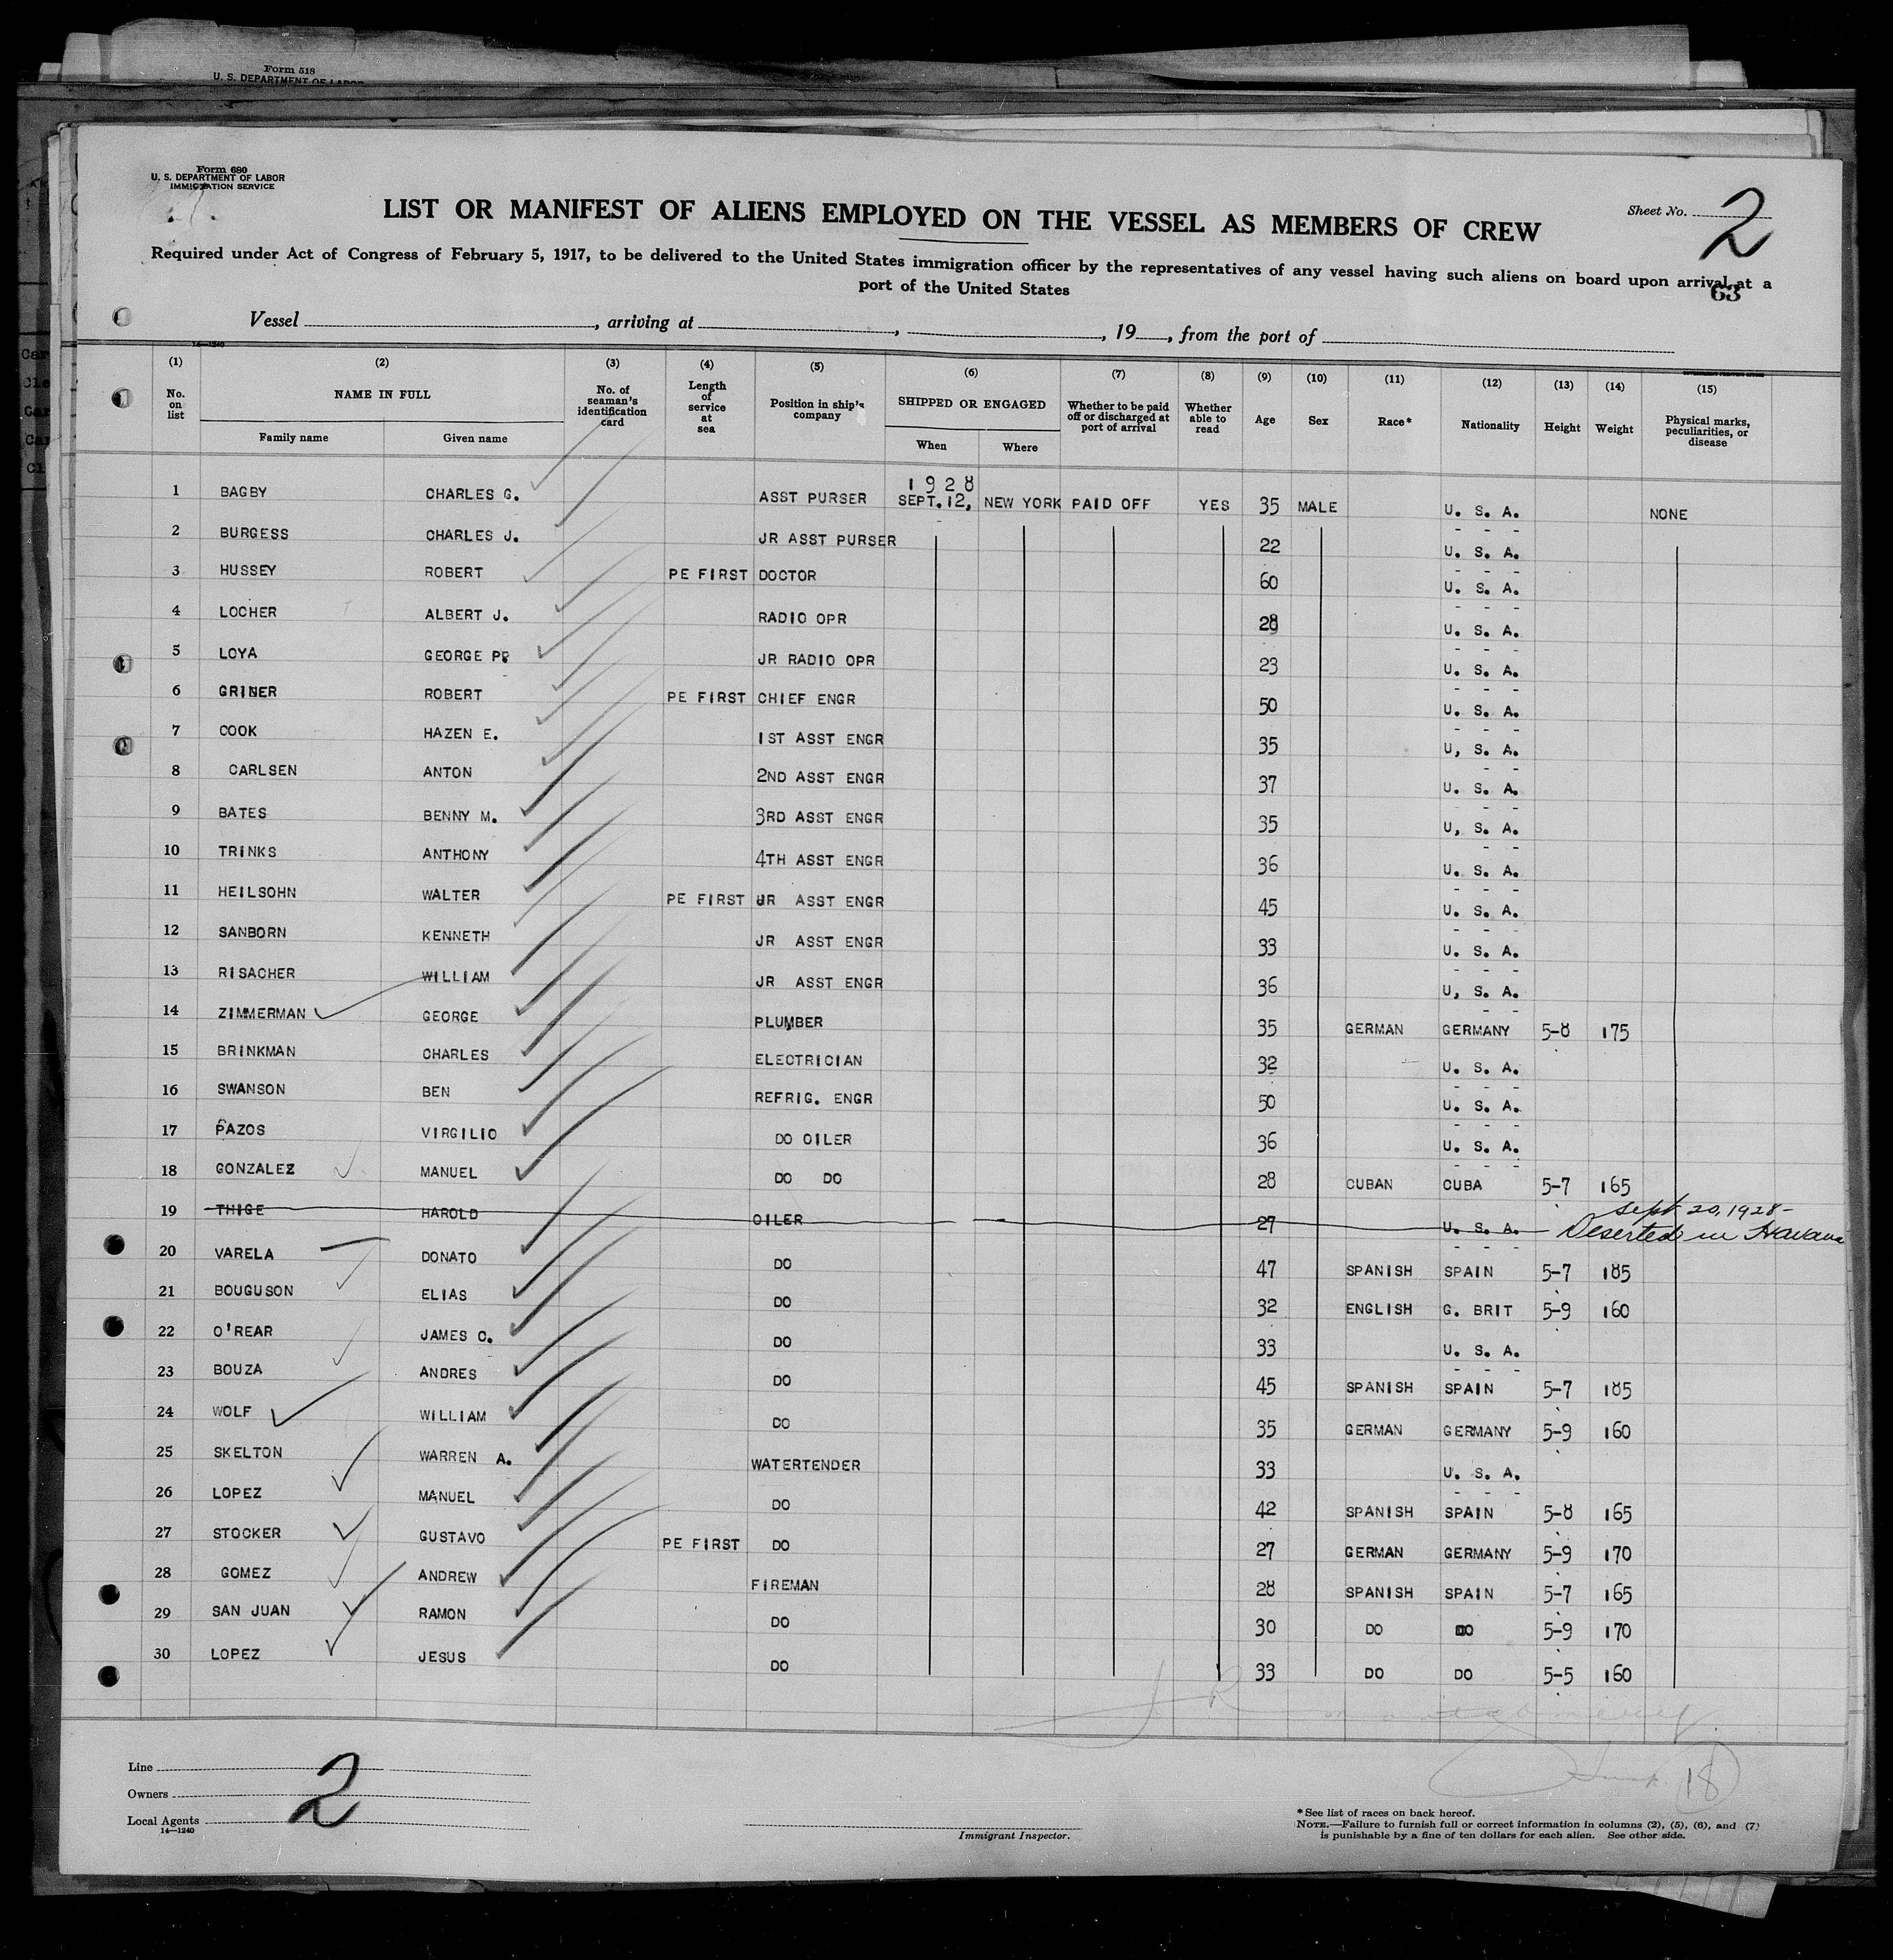 Form 518
U. S. DEPARTMENT OF LABOR
Form 680
U. S. DEPARTMENT OF LABOR
IMMIGRATION SERVICE
LIST OR MANIFEST OF ALIENS EMPLOYED ON THE VESSEL AS MEMBERS OF CREW
Sheet No. 2
Required under Act of Congress of February 5, 1917, to be delivered to the United States immigration officer by the representatives of any vessel having such aliens on board upon arrival at a
port of the United States
63
Vessel , arriving at , , 19 , from the port of
14—1240
(1) (2) (3) (4) (5) (6) (7) (8) (9) (10) (11) (12) (13) (14) (15)
No. on list NAME IN FULL No. of seaman's identification card Length of service at sea Position in ship's company SHIPPED OR ENGAGED Whether to be paid off or discharged at port of arrival Whether able to read Age Sex Race* Nationality Height Weight Physical marks, peculiarities, or disease
Family name Given name When Where
1 BAGBY CHARLES G. ASST PURSER 1928 SEPT.12, NEW YORK PAID OFF YES 35 MALE U. S. A. NONE
2 BURGESS CHARLES J. JR ASST PURSER 22 U. S. A.
3 HUSSEY ROBERT PE FIRST DOCTOR 60 U. S. A.
4 LOCHER ALBERT J. RADIO OPR 28 U. S. A.
5 LOYA GEORGE P. JR RADIO OPR 23 U. S. A.
6 GRINER ROBERT PE FIRST CHIEF ENGR 50 U. S. A.
7 COOK HAZEN E. 1ST ASST ENGR 35 U, S. A.
8 CARLSEN ANTON 2ND ASST ENGR 37 U. S. A.
9 BATES BENNY M. 3RD ASST ENGR 35 U, S. A.
10 TRINKS ANTHONY 4TH ASST ENGR 36 U. S. A.
11 HEILSOHN WALTER PE FIRST JR ASST ENGR 45 U. S. A.
12 SANBORN KENNETH JR ASST ENGR 33 U. S. A.
13 RISACHER WILLIAM JR ASST ENGR 36 U, S. A.
14 ZIMMERMAN GEORGE PLUMBER 35 GERMAN GERMANY 5-8 175
15 BRINKMAN CHARLES ELECTRICIAN 32 U. S. A.
16 SWANSON BEN REFRIG. ENGR 50 U. S. A.
17 PAZOS VIRGILIO DO OILER 36 U. S. A.
18 GONZALEZ MANUEL DO DO 28 CUBAN CUBA 5-7 165
19 THIGE HAROLD OILER 27 U. S. A. Sept 20, 1928- Deserted in Havana
20 VARELA DONATO DO 47 SPANISH SPAIN 5-7 185
21 BOUGUSON ELIAS DO 32 ENGLISH G. BRIT 5-9 160
22 O'REAR JAMES C. DO 33 U. S. A.
23 BOUZA ANDRES DO 45 SPANISH SPAIN 5-7 185
24 WOLF WILLIAM DO 35 GERMAN GERMANY 5-9 160
25 SKELTON WARREN A. WATERTENDER 33 U. S. A.
26 LOPEZ MANUEL DO 42 SPANISH SPAIN 5-8 165
27 STOCKER GUSTAVO PE FIRST DO 27 GERMAN GERMANY 5-9 170
28 GOMEZ ANDREW FIREMAN 28 SPANISH SPAIN 5-7 165
29 SAN JUAN RAMON DO 30 DO DO 5-9 170
30 LOPEZ JESUS DO 33 DO DO 5-5 160
18
Line
Owners
Local Agents
14—1240
2
Immigrant Inspector.
*See list of races on back hereof.
NOTE.—Failure to furnish full or correct information in columns (2), (5), (6), and (7)
is punishable by a fine of ten dollars for each alien. See other side.